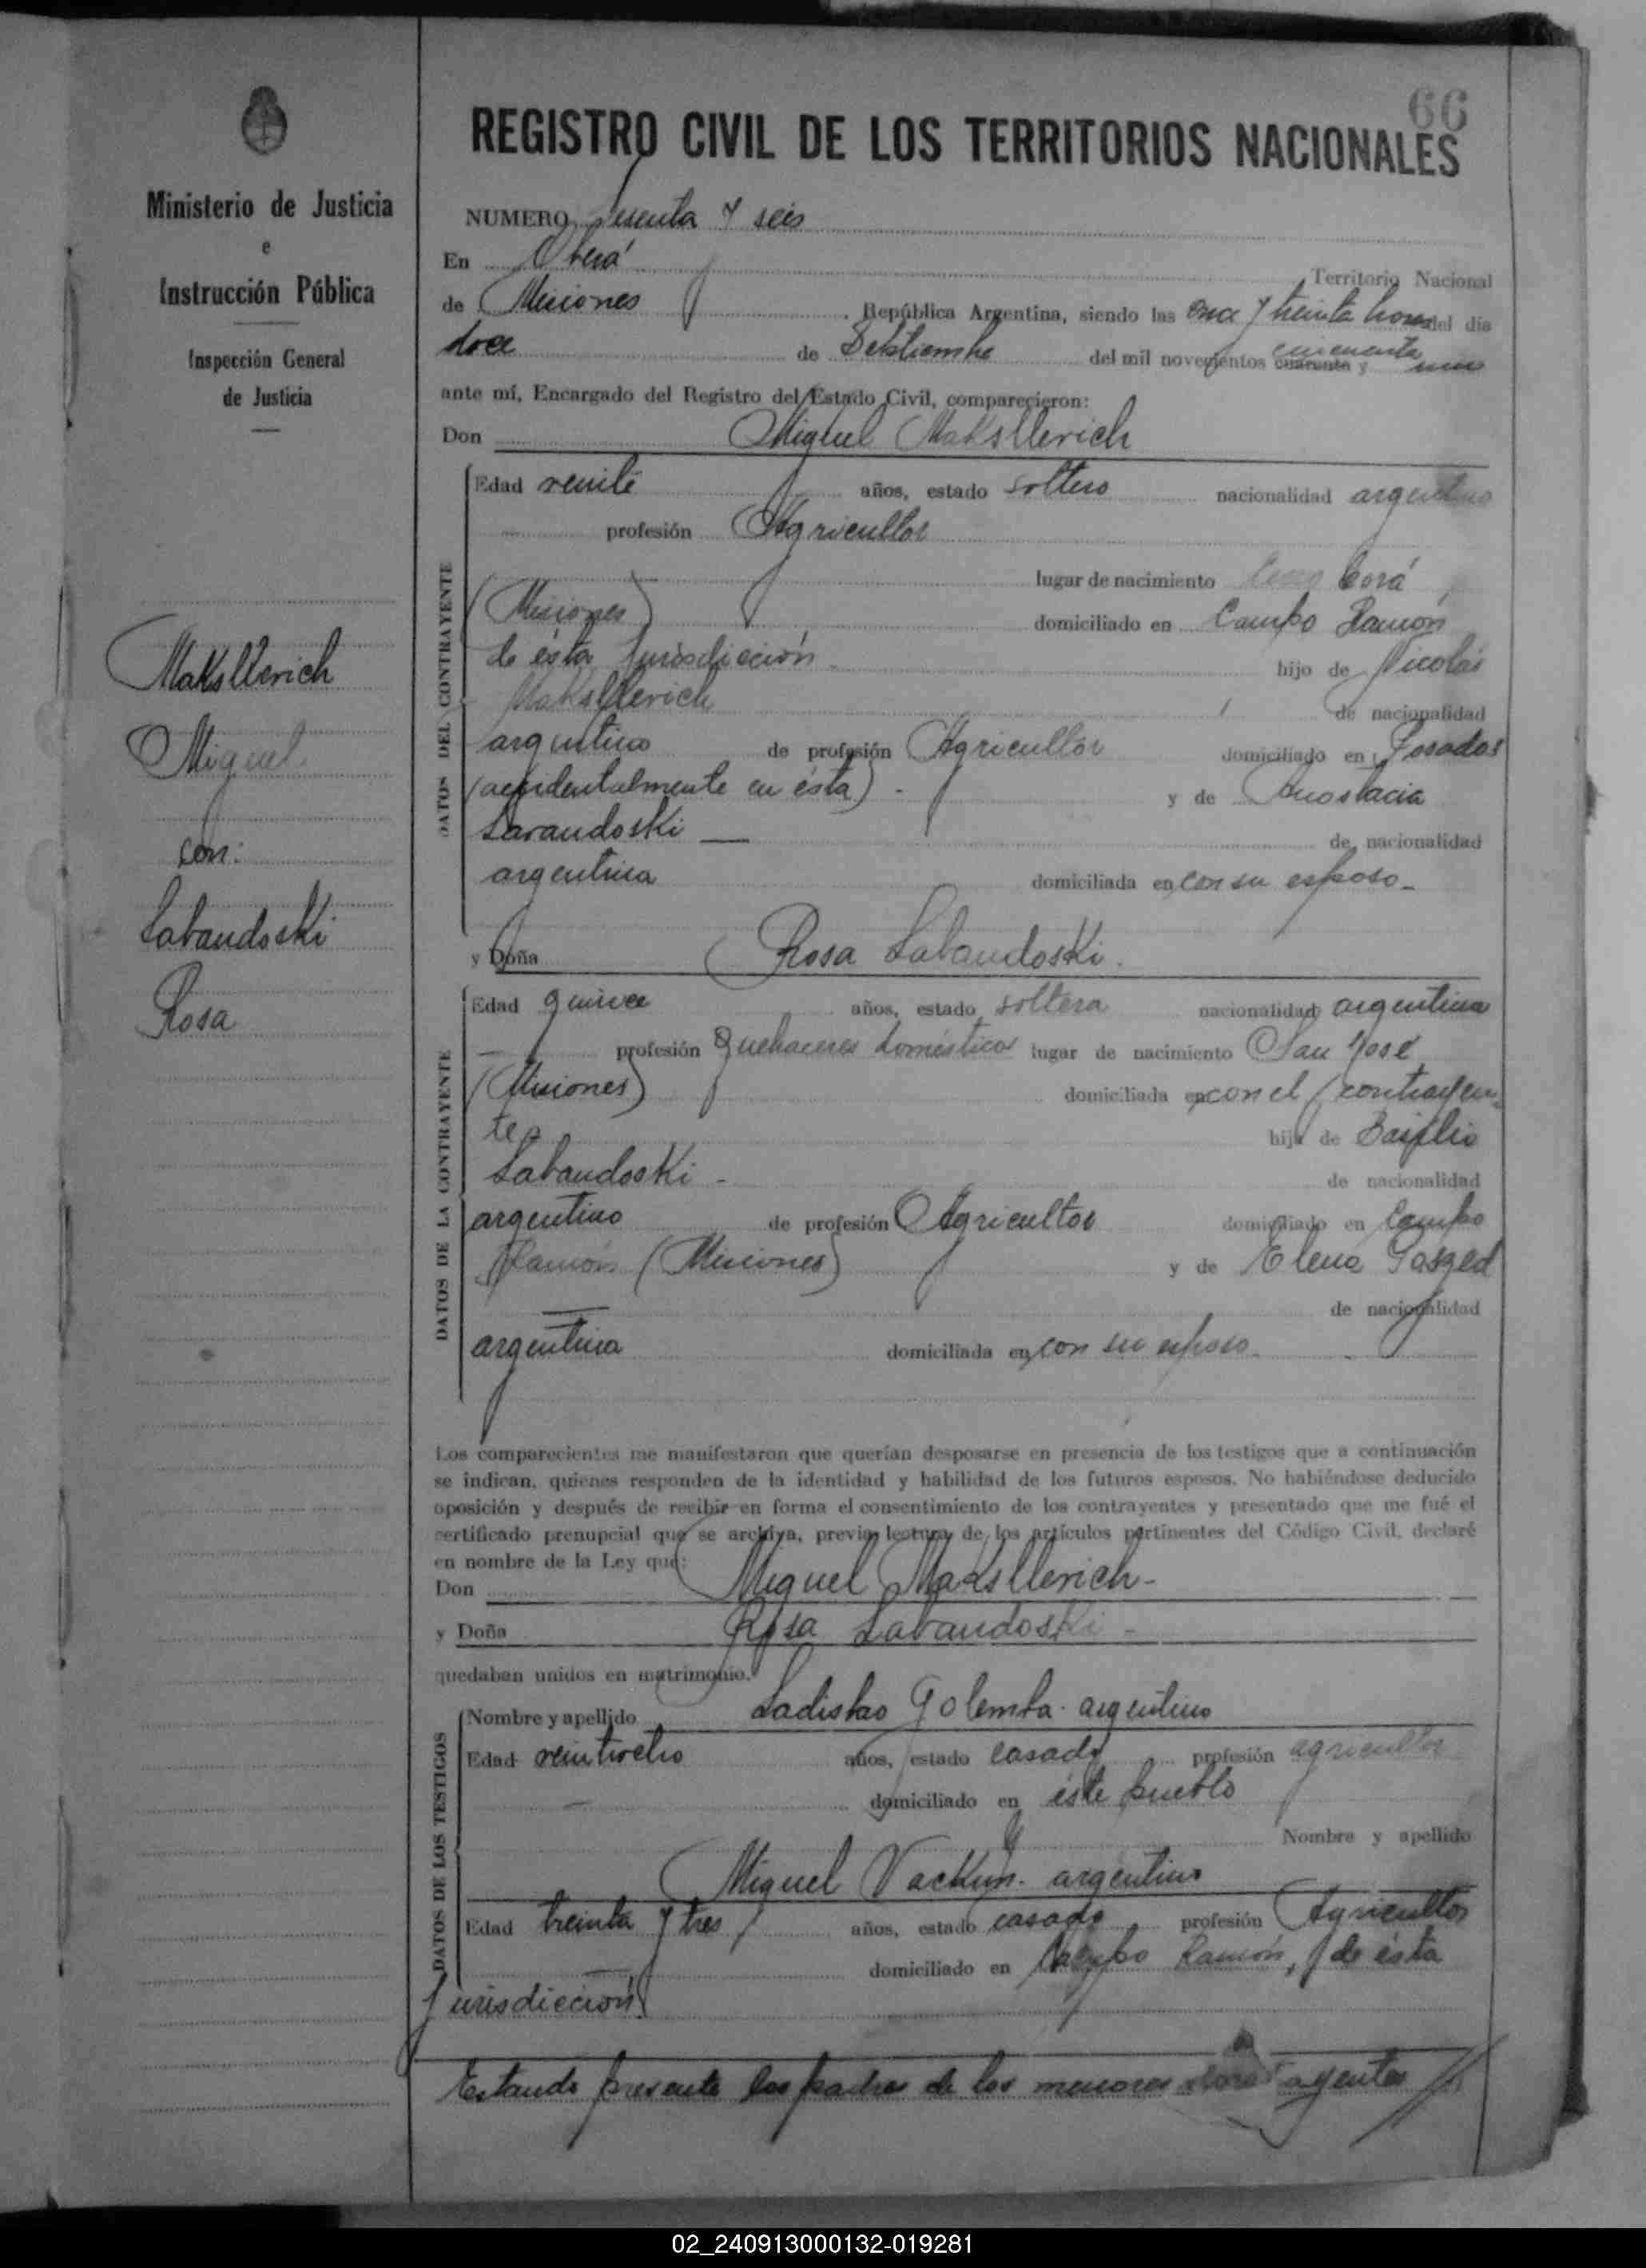 66
REGISTRO CIVIL DE LOS TERRITORIOS NACIONALES
Ministerio de Justicia
e
Instrucción Pública
Inspección General
de Justicia
Maksllerich
Miguel
con:
Labandoski
Rosa
NUMERO sesenta y seis
En Oberá Territorio Nacional
de Misiones República Argentina, siendo las once y treinta horas del día
doce de Setiembre del mil novecientos cuarenta y cincuenta uno
ante mí, Encargado del Registro del Estado Civil, comparecieron:
Don Miguel Maksllerich
DATOS DEL CONTRAYENTE
Edad veinte años, estado soltero nacionalidad argentino
profesión Agricultor
lugar de nacimiento Cerro Corá
(Misiones) domiciliado en Campo Ramón
de ésta Jurisdicción hijo de Nicolás
Maksllerich de nacionalidad
argentino de profesión Agricultor domiciliado en Posadas
(accidentalmente en ésta) - y de Anastacia
Sarandoski — de nacionalidad
argentina domiciliada en con su esposo -
y Doña Rosa Labandoski.
DATOS DE LA CONTRAYENTE
Edad quince años, estado soltera nacionalidad argentina
— profesión Quehaceres domésticos lugar de nacimiento San José
(Misiones) domiciliada en con el contrayen-
te hija de Basilio
Labandoski - de nacionalidad
argentino de profesión Agricultor domiciliado en Campo
Ramón (Misiones) y de Elena
de nacionalidad
argentina domiciliada en con su esposo -
Los comparecientes me manifestaron que querían desposarse en presencia de los testigos que a continuación
se indican, quienes responden de la identidad y habilidad de los futuros esposos. No habiéndose deducido
oposición y después de recibir en forma el consentimiento de los contrayentes y presentado que me fué el
certificado prenupcial que se archiva, previa lectura de los artículos pertinentes del Código Civil, declaré
en nombre de la Ley que:
Don Miguel Maksllerich -
y Doña Rosa Labandoski -
quedaban unidos en matrimonio.
DATOS DE LOS TESTIGOS
Nombre y apellido Ladislao Golemba - argentino
Edad veintiocho años, estado casado profesión agricultor
— domiciliado en éste pueblo
Nombre y apellido
Miguel Vackun - argentino
Edad treinta y tres años, estado casado profesión Agricultor
— domiciliado en Campo Ramón, de ésta
Jurisdicción
Estando presente los padres de los menores contrayentes
02_240913000132-019281